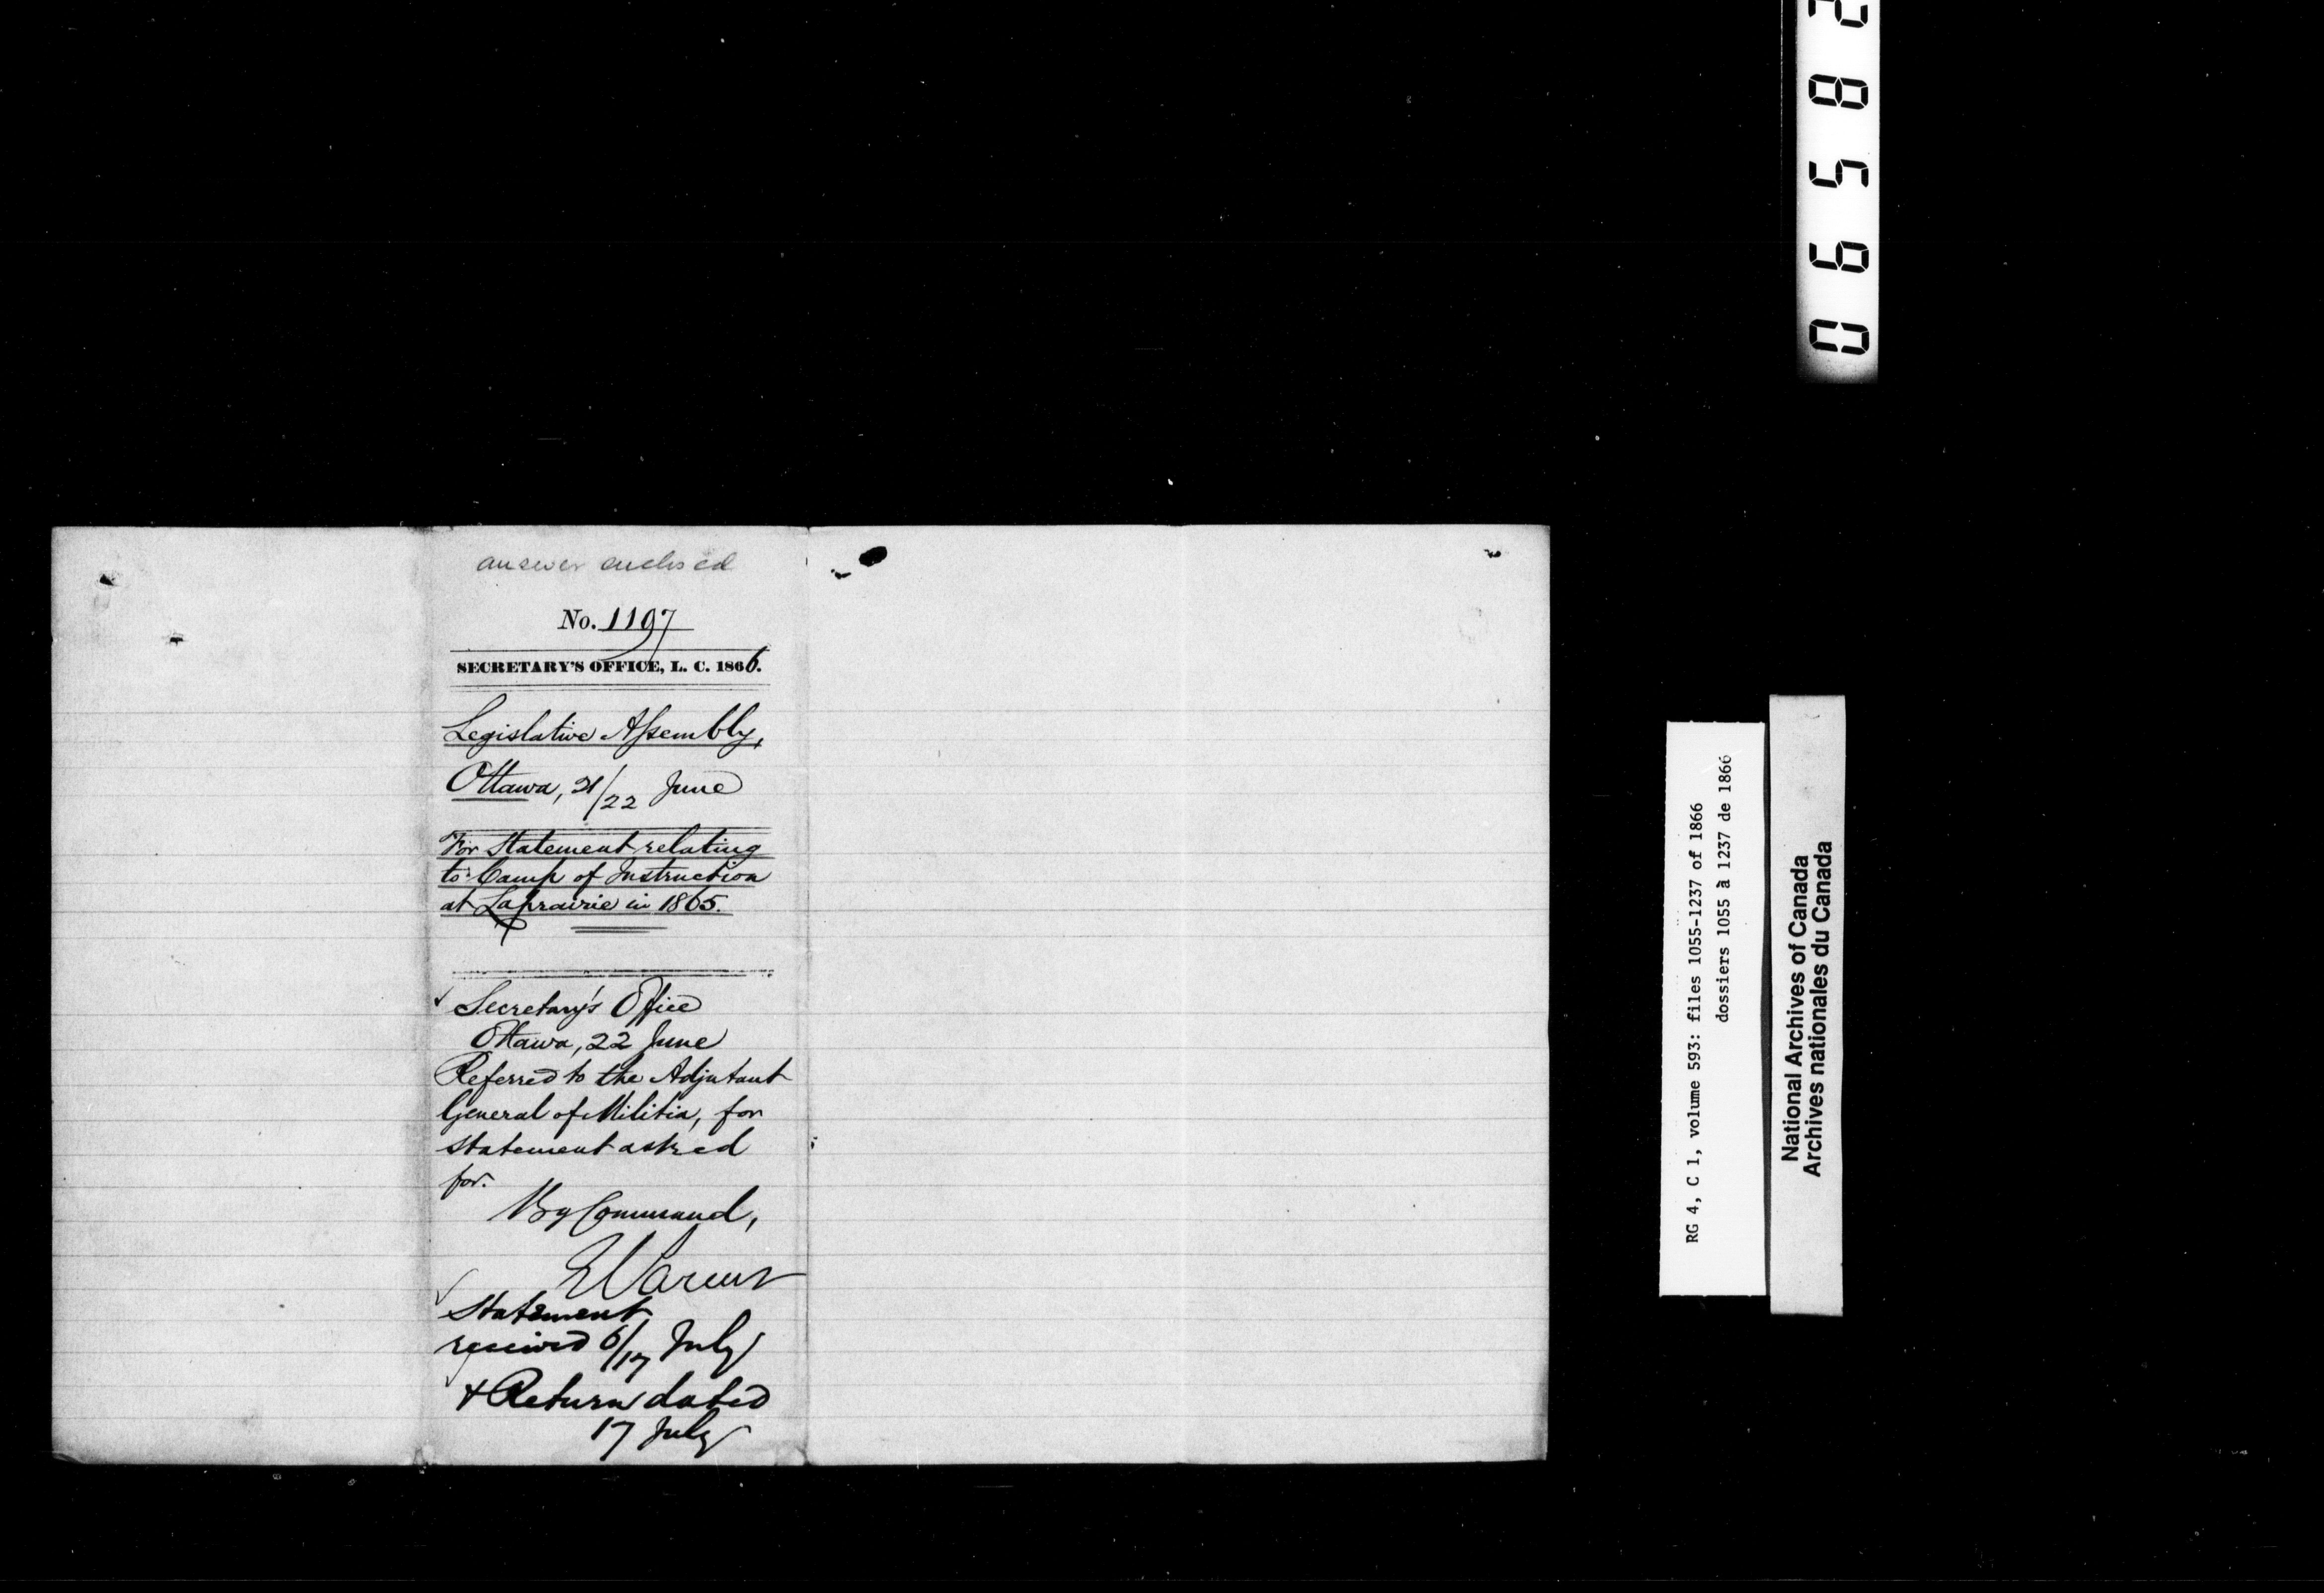 answer enclosed
No. 1197
SECRETARY'S OFFICE, L. C. 1866.
Legislative Assembly,
Ottawa, 21/22 June
For Statement relating
to Camp of Instruction
at Laprairie in 1865.
Secretary's Office
Ottawa, 22 June
Referred to the Adjutant
General of Militia, for
statement asked
for.
By Command,
Statement
received 6/17 July
& Return dated
17 July
06582
RG 4, C 1, volume 593: files 1055-1237 of 1866
dossiers 1055 à 1237 de 1866
National Archives of Canada
Archives nationales du Canada